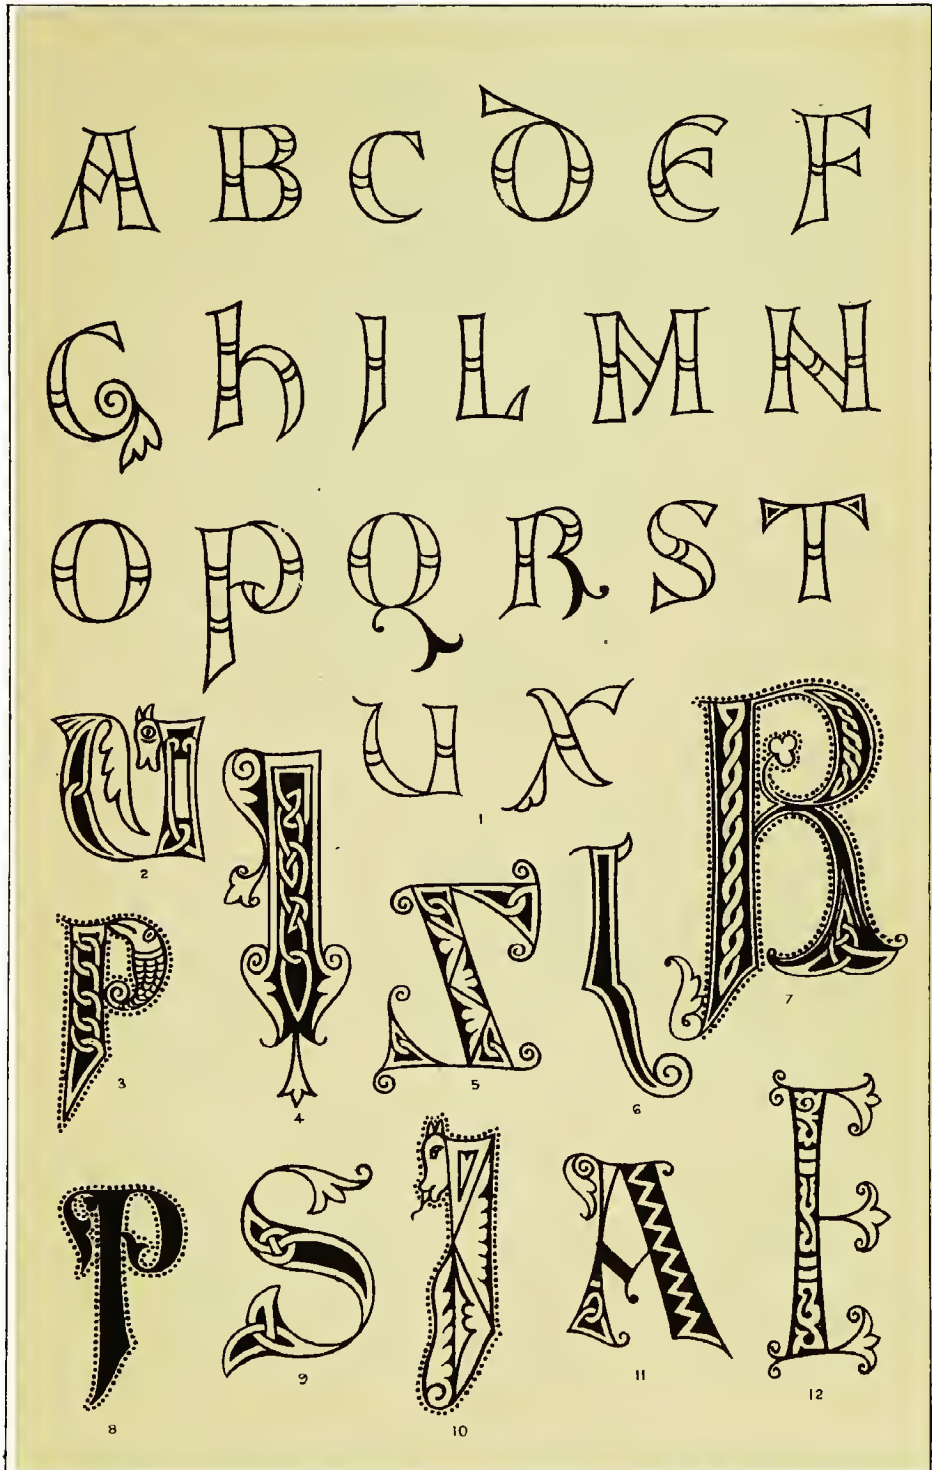 A B C D E F
G h I L M N
O P Q R S T
U X
1
U
2
I
4
R
7
P
3
Z
5
L
6
P
8
S
9
I
10
A
11
E
12